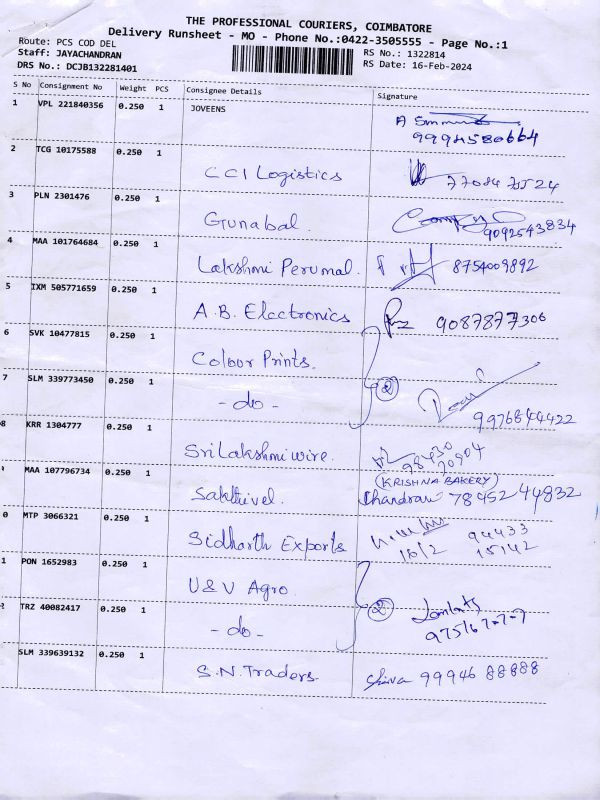 THE PROFESSIONAL COURIERS, COIMBATORE
Delivery Runsheet - MO - Phone No.:0422-3505555 - Page No.:1
Route: PCS COD DEL
Staff: JAYACHANDRAN
DRS No.: DCJB132281401
RS No.: 1322814
RS Date: 16-Feb-2024
S No Consignment No Weight PCS Consignee Details Signature
1 VPL 221840356 0.250 1 JOVEENS
9994580664
2 TCG 10175588 0.250 1
CCI Logistics
3 PLN 2301476 0.250 1
Gunabal. 9092543834
4 MAA 101764684 0.250 1
Lakshmi Perumal. 8754009892
5 IXM 505771659 0.250 1
A.B. Electronics 9087877306
6 SVK 10477815 0.250 1
Colour Prints.
7 SLM 339773450 0.250 1 2
- do - 9976844422
8 KRR 1304777 0.250 1
Sri Lakshmi wire. 98430
70904
MAA 107796734 0.250 1 (KRISHNA BAKERY)
Sakthivel. Chandran 78452 44832
0 MTP 3066321 0.250 1
Sidharth Exports 16/2 94433
15142
1 PON 1652983 0.250 1
U & V Agro.
2 TRZ 40082417 0.250 1 2
- do -
SLM 339639132 0.250 1
S.N. Traders. Shiva 99946 88888